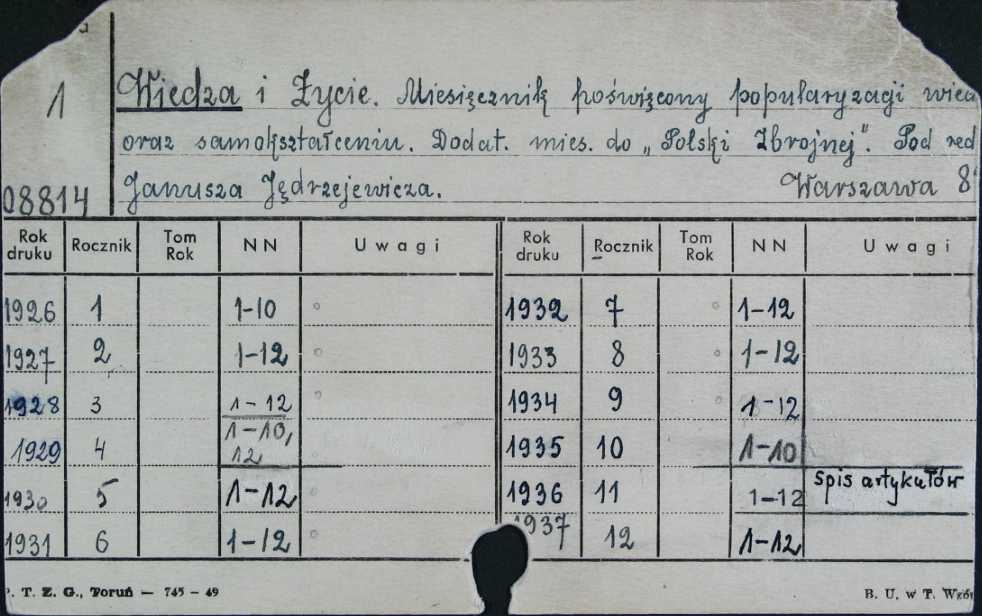 1
Wiedza i Życie. Miesięcznik poświęcony popularyzacji
oraz samokształceniu. Dodat. mies. do „Polski Zbrojnej". Pod red
08814 Janusza Jędrzejewicza. Warszawa 8
Rok druku Rocznik Tom Rok NN Uwagi Rok druku Rocznik Tom Rok NN Uwagi
1926 1 1-10 1932 7 1-12
1927 2 1-12 1933 8 1-12
1928 3 1-12 1934 9 1-12
1929 4 1-10, 12 1935 10 1-10
1930 5 1-12 1936 11 1-12 spis artykułów
1931 6 1-12 1937 12 1-12
. T. Z. G., Toruń — 745 - 49 B. U. w T.